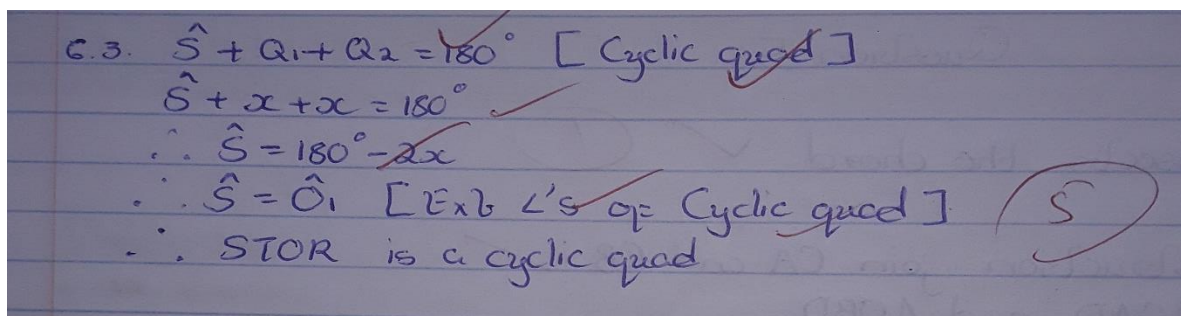 6.3. Ŝ + Q₁ + Q₂ = 180° [Cyclic quad]
Ŝ + x + x = 180°
∴ Ŝ = 180° - 2x
∴ Ŝ = Ô₁ [Ext ∠'s of Cyclic quad] 5
∴ STOR is a cyclic quad